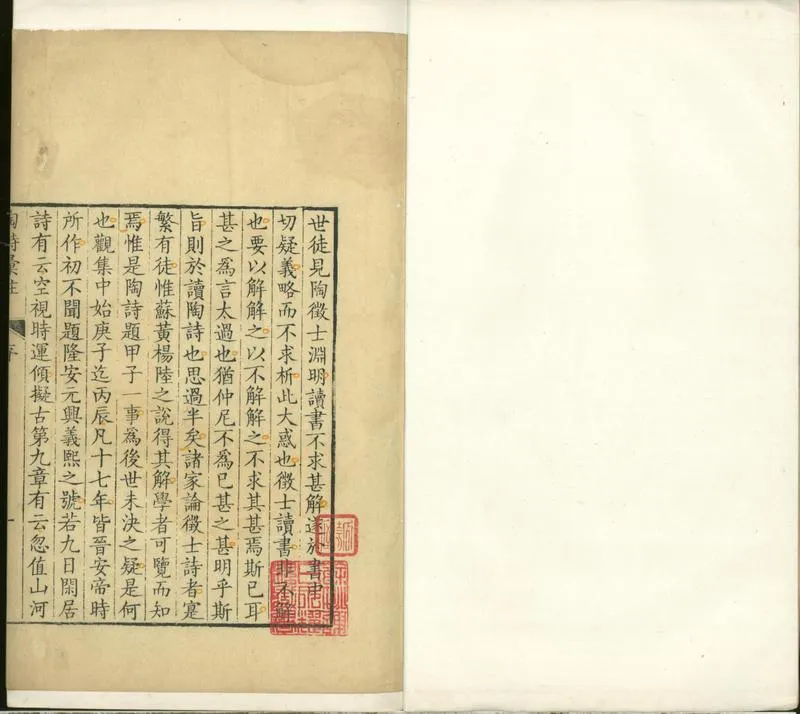 世徒見陶徵士淵明讀書不求甚解遂於書中
切疑義略而不求析此大惑也徵士讀書非不解
也要以解解之以不解解之不求其甚焉斯已耳
甚之為言太過也猶仲尼不為已甚之甚明乎斯
旨則於讀陶詩也思過半矣諸家論徵士詩者寔
繁有徒惟蘇黃楊陸之說得其解學者可覽而知
焉惟是陶詩題甲子一事為後世未決之疑是何
也觀集中始庚子迄丙辰凡十七年皆晉安帝時
所作初不聞題隆安元興義熙之號若九日閑居
詩有云空視時運傾擬古第九章有云忽值山河
陶詩彙註 序 一